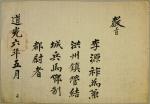 教旨
李源祚爲兼
洪州鎭營結
城兵馬節制
都尉者
道光六年五月